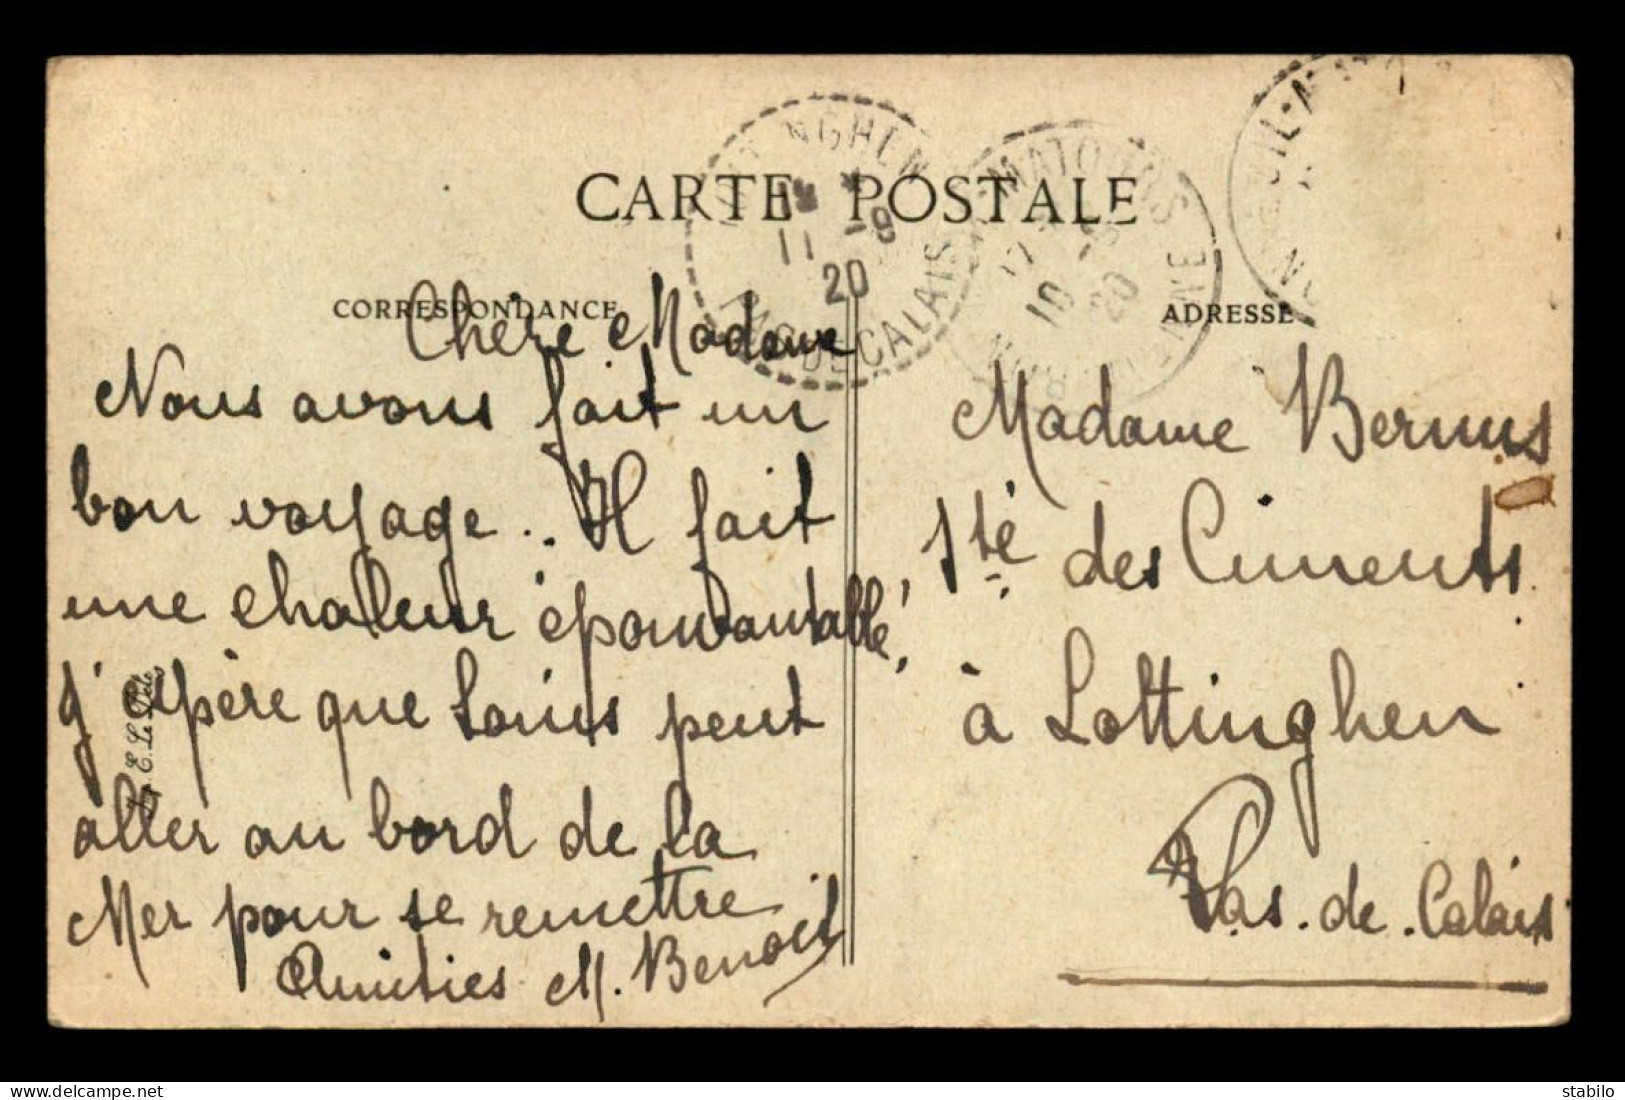 CARTE POSTALE
CORRESPONDANCE
ADRESSE
NGHEN
11 -8
20
PAS DE CALAIS
10
20
Chère Madame
Nous avons fait un
bon voyage .. Il fait
une chaleur épouvantable!
j'espère que Louis peut
aller au bord de la
Mer pour se remettre
Amitiés M. Benoit
E. Le Dele
Madame Bernus
Sté des Ciments
à Lottinghen
Pas. de. Calais
www.delcampe.net
stabilo